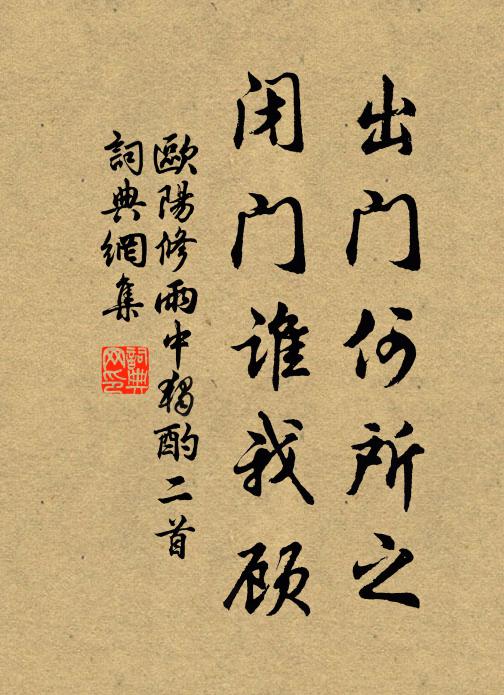 出门何所之
闭门谁我顾
歐陽修雨中獨酌二首
詞典網集
詞典网印